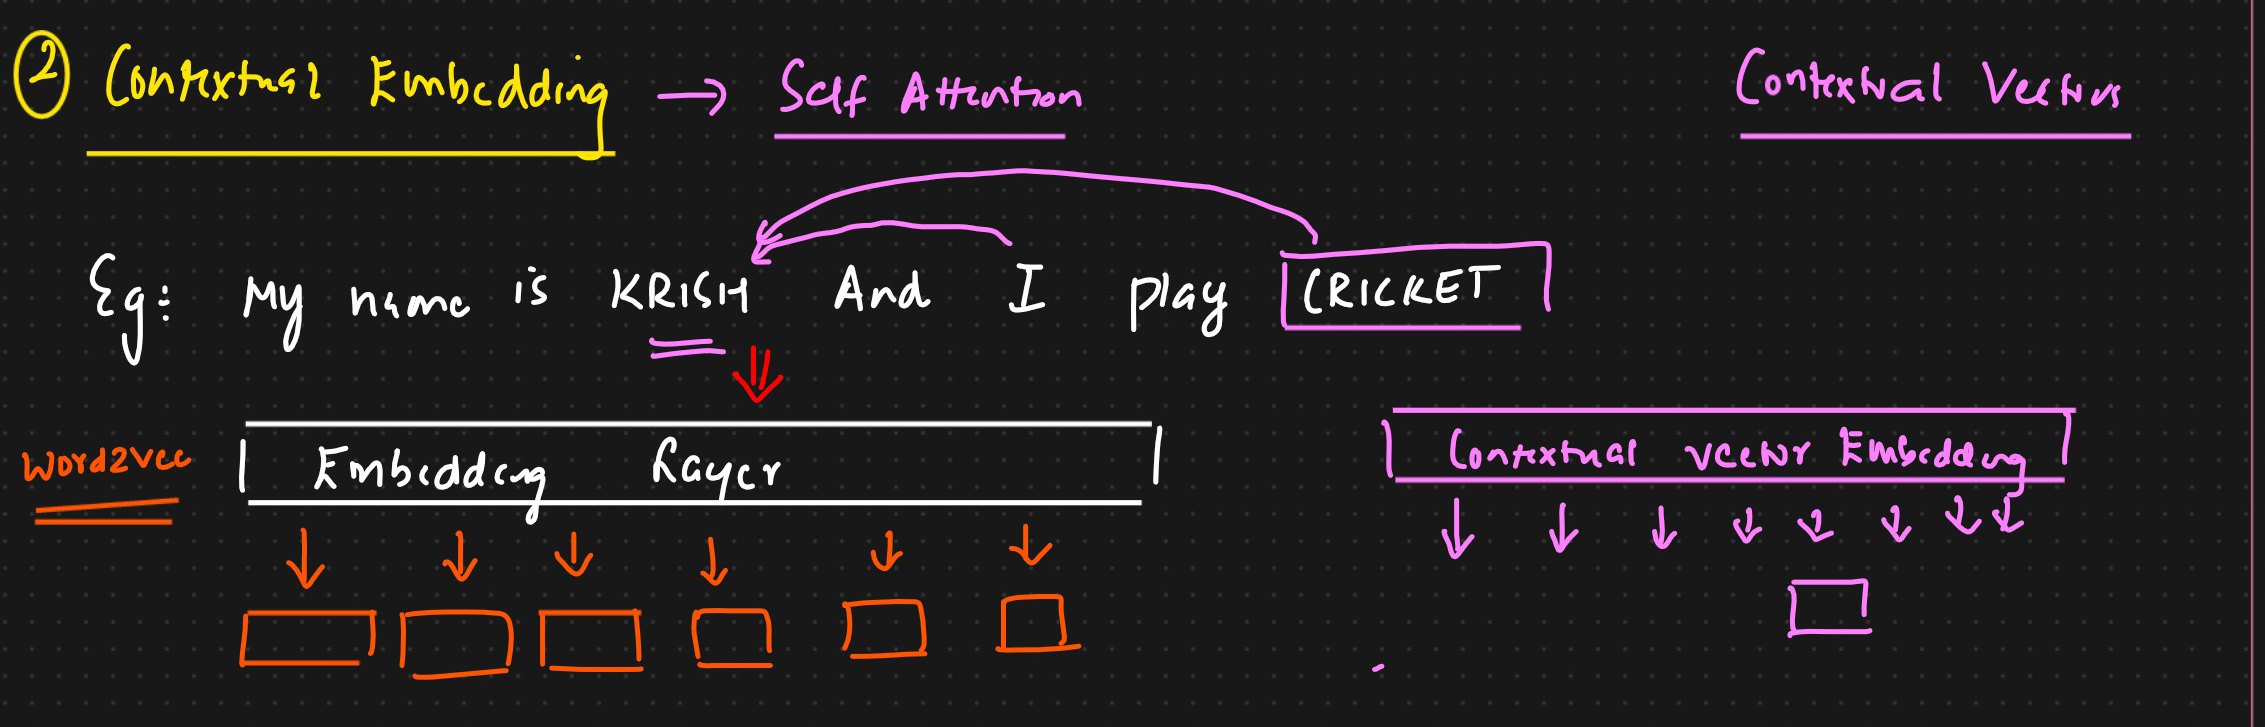 ② Contextual Embedding → Self Attention
Contextual Vectors
Eg: My name is KRISH And I play CRICKET
Word2vec
Embedding Layer
Contextual vector Embedding